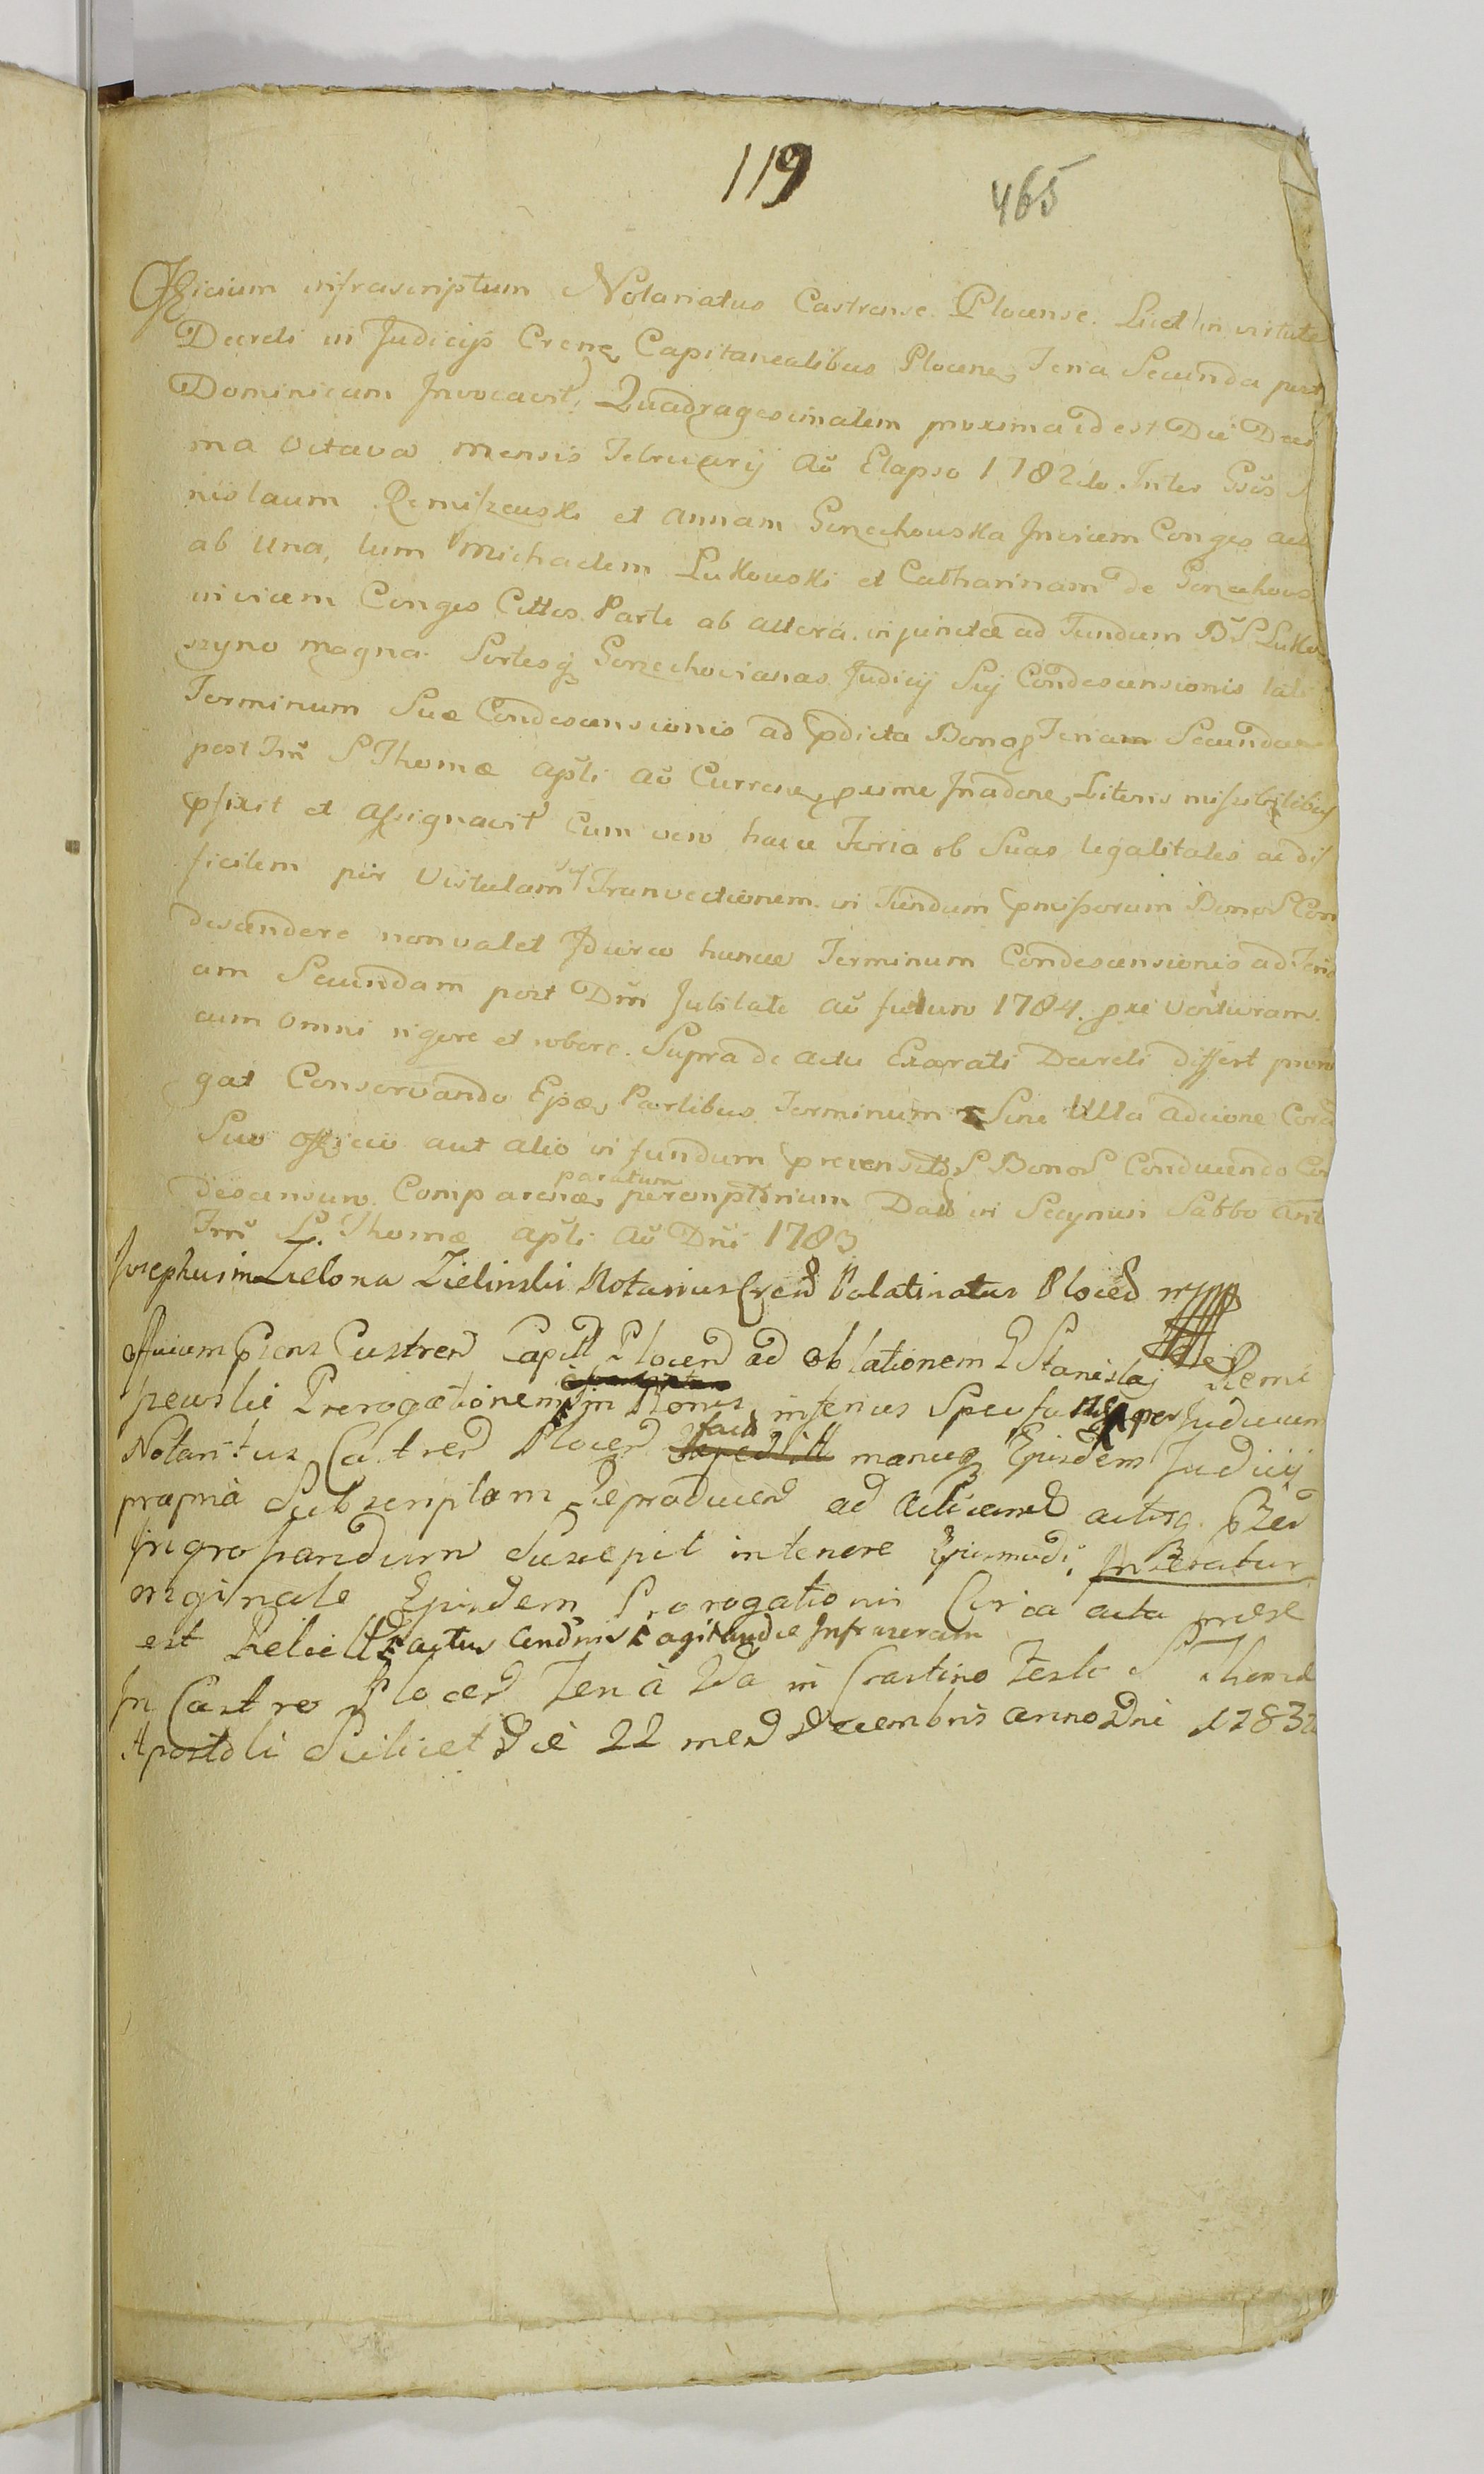 119
465
Officium infrascriptum Notariatus Castrense Plocense. Licet in virtute
Decreti in Judicijs Crene Capitanealibus Plocene Feria Secunda post
Dominicam Invocavit Quadragesimalem proxima id est Die Deci
ma Octava Mensis Februarij Aõ Elapso 1782do Inter Gsos S
nislaum Remiszewski et Annam Gorzechowska Invicem Conges Act
ab Una, tum Michaelem Lukowski et Catharinam de Gorzechows
invicem Conges Cittos Parte ab altera. injunctæ ad Fundum B S Luko
szyno magna Sortesq Gorzechovianas Judicij Sui Condescensionis tali
Terminum Suæ Condescensionis ad pdicta Bona Feriam Secundam
post Frm S Thomæ Apsti Aõ Currene, pxime Inadene, Literis missibilibus
pfixit et Assignavit Cum vero hacce Feria ob Suas legalitates ac dif
ficilem per Vistulam Tranvectionem in Fundum pmissorum Bonos Con
descendere non valet Idcirco huncce Terminum Condescensionis ad Feri
am Secundam post Dni Jubilate Aõ futuro 1784. pxe Venturam.
cum omni vigore et robore. Supra de actu Exarati Decreti differt proro
gat Conservando Epæ, Partibus Terminum Sine Ulla Adcione Cora
Suo Officio aut alio in fundum precensitos Bonos Conducendo Con
descensuro. Comparenæ, paratum peremptorium Dato in Secymin Sabbo Ant
Frm S. Thomæ Apsti Aõ Dni 1783
Josephus in Zielona Zielinski Notarius Cren Palatinatus Plocen mpp
Officium pns Castren Capitl Plocen ad oblationem G Stanislaj Remi
szewski Prorogationem in Bonis inferius Specifi per Judicium
Notariatus Castren Plocen fact manuq Ejusdem Judicij
propriâ Subscriptam Reproducen ad Acticand actisq
Ingrossandum Suscepit in tenore Ejusmodi. Inseratur
originale Ejusdem Prorogationis Circa acta prese
est Relict
In Castro Plocen Feriâ 2da in Crastino Festi S Thomæ
Apostoli Scilicet Die 22 men Decembris anno Dni 1783